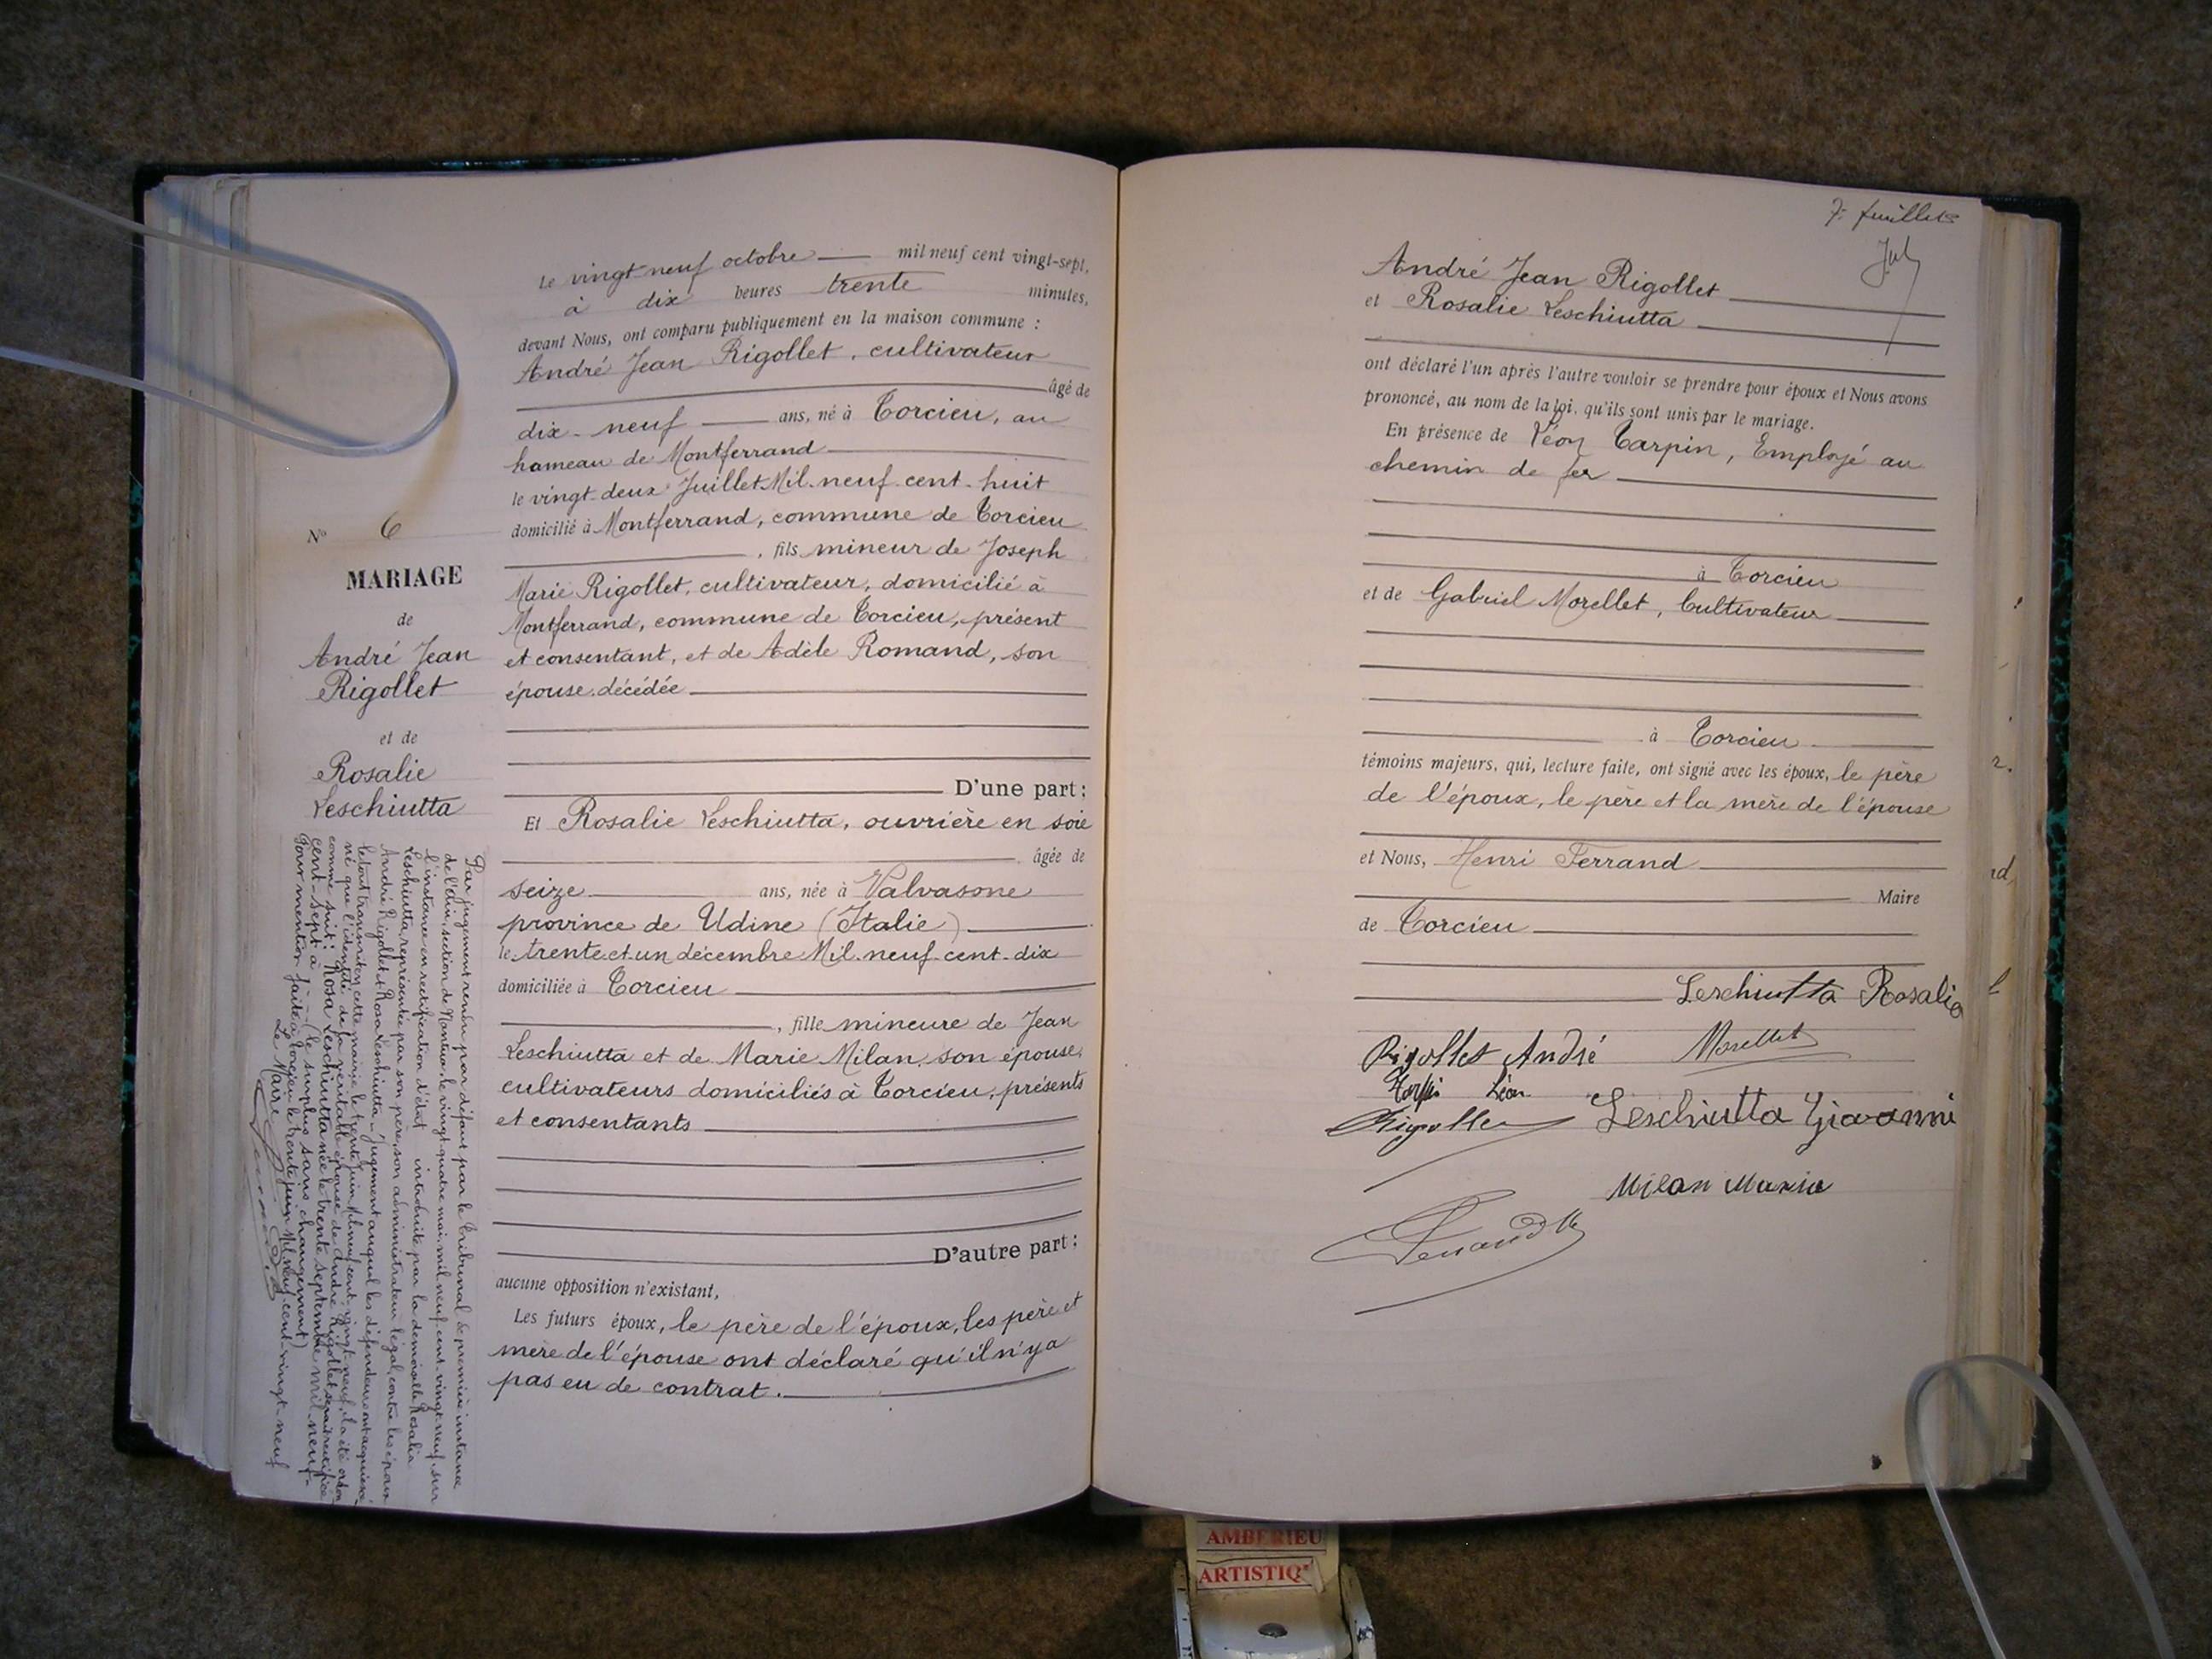 N° 6
MARIAGE
de
André Jean
Rigollet
et de
Rosalie
Leschiutta
Par jugement rendu par défaut par le Tribunal de première instance
de l'Ain, section de Nantua, le vingt-quatre mai mil neuf cent vingt neuf, sur
l'instance en rectification d'état introduite par la demoiselle Rosalia
Leschiutta, représentée par son père, son administrateur légal, contre les époux
André Rigollet et Rosa Leschiutta. Jugement auquel les défendeurs ont acquiescé
le tout transmis à cette mairie le trente juin Mil neuf cent vingt-neuf, il a été ordon-
né que l'identité de la véritable épouse de André Rigollet serait rectifiée
comme suit: "Rosa Leschiutta née le trente septembre mil neuf-
cent-sept à (le surplus sans changement)
Pour mention faite à Torcieu le trente juin Mil neuf cent-vingt-neuf
Le Maire
Le vingt-neuf octobre mil neuf cent vingt-sept,
à dix heures trente minutes,
devant Nous, ont comparu publiquement en la maison commune :
André Jean Rigollet, cultivateur
âgé de
dix-neuf ans, né à Torcieu, au
hameau de Montferrand
le vingt-deux Juillet Mil-neuf-cent-huit
domicilié à Montferrand, commune de Torcieu
, fils mineur de Joseph
Marie Rigollet, cultivateur, domicilié à
Montferrand, commune de Torcieu, présent
et consentant, et de Adèle Romand, son
épouse décédée
D'une part ;
Et Rosalie Leschiutta, ouvrière en soie
âgée de
seize ans, née à Valvasone
province de Udine (Italie)
le trente et un décembre Mil-neuf-cent-dix
domiciliée à Torcieu
, fille mineure de Jean
Leschiutta et de Marie Milan son épouse,
cultivateurs domiciliés à Torcieu, présents
et consentants
D'autre part ;
aucune opposition n'existant,
Les futurs époux, le père de l'époux, les père et
mère de l'épouse ont déclaré qu'il n'y a
pas eu de contrat.
7e feuillet
André Jean Rigollet
et Rosalie Leschiutta
ont déclaré l'un après l'autre vouloir se prendre pour époux et Nous avons
prononcé, au nom de la loi, qu'ils sont unis par le mariage.
En présence de Léon Tarpin, Employé au
chemin de fer
à Torcieu
et de Gabriel Morellet, Cultivateur
à Torcieu
témoins majeurs, qui, lecture faite, ont signé avec les époux, le père
de l'époux, le père et la mère de l'épouse
et Nous, Henri Ferrand
Maire
de Torcieu
Leschiutta Rosalia
Rigollet André Morellet
Tarpin Léon
Rigollet Leschiutta Giovanni
Milan Maria
Ferrand H
AMBERIEU
ARTISTIQ